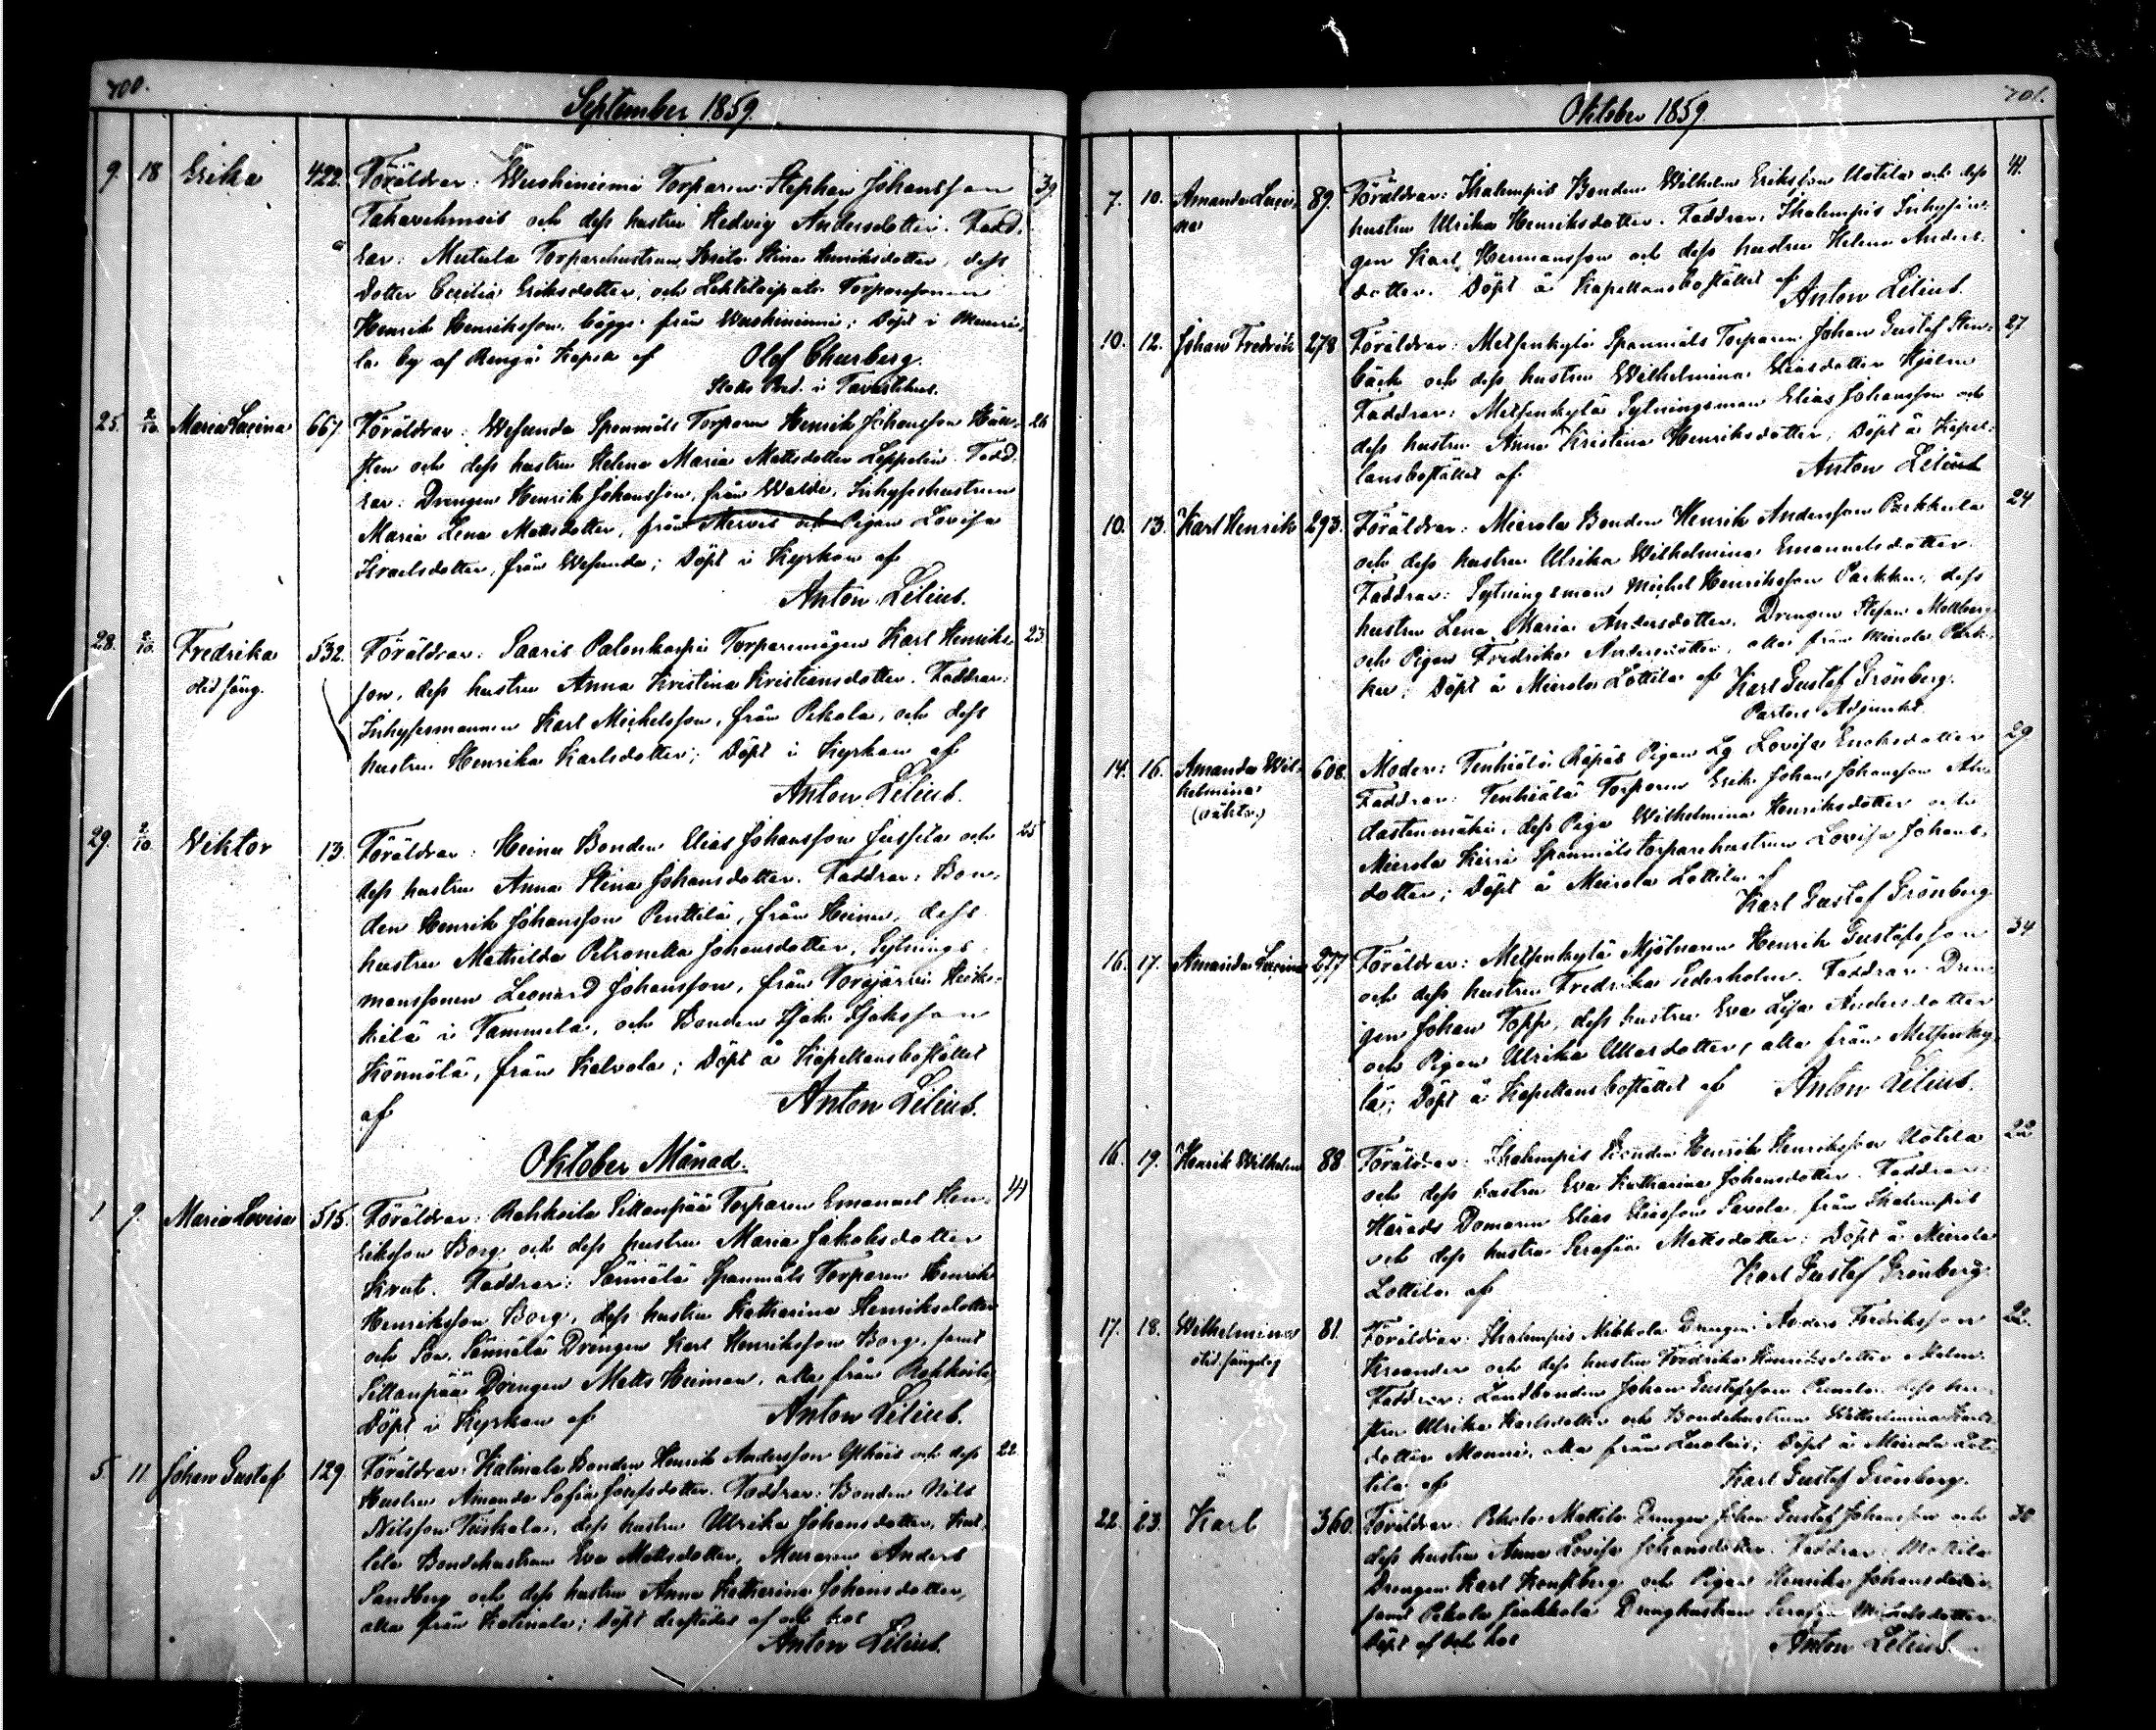 700.
September 1859.
9. 18 Erika 422. Föräldrar: Torparen Stephan Johansson 39.
och dess hustru Hedvig Andersdotter. Fadd-
rar: Mutula Torparehustrun Stina Henriksdotter, dess
dotter Cecilia Eriksdotter, och Torparesonen
Henrik Henriksson, bägge från ; Döpt i
la by af Rengå Kapell af Olof Churberg.
Slotts Pred. i Tavastehus.
25. 2/10 Maria Lucina 667. Föräldrar: Wesunda Spanmåls Torparen Henrik Johansson 26
sten och dess hustru Helena Maria Mattsdotter Leppelin. Fadd-
rar: Drengen Henrik Johansson, från Walde, Inhyseshustrun
Maria Lena Mattsdotter, från Mervis och Pigan Lovisa
Israelsdotter, från Wesunda; Döpt i Kyrkan af
Anton Lilius.
28. 2/10. Fredrika 532. Föräldrar: Saaris Palonkorpi Torparemågen Karl Henriks- 23
son, dess hustru Anna Kristina Kristiansdotter. Faddrar:
Inhysesmannen Karl Michelsson, från Pekola, och dess
hustru Henrika Karlsdotter; Döpt i Kyrkan af
Anton Lilius.
29. 2/10 Viktor 13. Föräldrar: Heinu Bonden Elias Johansson Jussila och 25
dess hustru Anna Stina Johansdotter. Faddrar: Bon-
den Henrik Johansson Penttilä, från Heinu, dess
hustru Mathilda Petronella Johansdotter, Sytnings-
manssonen Leonard Johansson, från Torajärvi Heik-
kilä i Tammela, och Bonden Isak Isaksson
Könnölä, från Kalvola; Döpt å Kapellansbostället
af Anton Lilius.
Oktober Månad.
1 9. Maria Lovisa 515. Föräldrar: Rahkoila Sillanpää Torparen Emanuel Hen- 41
Eriksson Borg och dess hustru Maria Jakobsdotter
Krut. Faddrar: Sännälä Spanmåls Torparen Henrik
Henriksson Borg, dess hustru Katharina Henriksdotter
och Son, Sännälä Drengen Karl Henriksson Borg, samt
Sillanpää Drengen Matts Heiman, alla från Rahkoila;
Döpt i Kyrkan af Anton Lilius.
5 11 Johan Gustaf 129. Föräldrar: Katinala Bonden Henrik Andersson och dess 22.
Hustru Amanda Sofia Josefsdotter. Faddrar: Bonden Nils
Nilsson, dess hustru Ulrika Johansdotter,
Bondehustrun Eva Mattsdotter, Muraren Anders
Sandberg och dess hustru Anna Katharina Johansdotter,
alla från Katinala; Döpt derstädes af och hos
Anton Lilius.
701.
Oktober 1859.
7. 10. Amanda Luci- 89. Föräldrar: Ihalempis Bonden Wilhelm Eriksson Uotila och dess 41.
na hustru Ulrika Henriksdotter. Faddrar: Ihalempis Inhysin-
gen Karl Hermansson och dess hustru Helena Anders-
dotter. Döpt å Kapellansbostället af
Anton Lilius.
10. 12. Johan Fredrik 278 Föräldrar: Metsenkylä Spanmåls Torparen Johan Gustaf Sten- 27
bäck och dess hustru Wilhelmina Eliasdotter Hjelm
Faddrar: Metsenkylä Sytningsman Elias Johansson och
dess hustru Anna Kristina Henriksdotter; Döpt å Kapel-
lansbostället af Anton Lilius
10. 13. Karl Henrik 293. Föräldrar: Mierola Bonden Henrik Andersson Parkkula 24.
och dess hustru Ulrika Wilhelmina Emanuelsdotter.
Faddrar: Sytningsman Michel Henriksson Parkku, dess
hustru Lena Maria Andersdotter, Drengen Stefan Mollberg
och Pigan Fredrika Andersdotter, alla från Mierola Park-
ku; Döpt å Mierola Lottila af Karl Gustaf Grönberg.
Pastors Adjunkt.
14. 16. Amanda Wil- 608. Moder: Tenhiälä Pigan Lovisa Enoksdotter 29
helmina Faddrar: Tenhiälä Torparen Erik Johan Johansson Ala-
(oäkta.) dess Piga Wilhelmina Henriksdotter och
Mierola Spanmålstorparehustrun Lovisa Johans-
dotter; Döpt å Mierola Lottila af
Karl Gustaf Grönberg
16. 17. Amanda Lucina 277 Föräldrar: Metsenkylä Mjölnaren Henrik Gustafsson 34
och dess hustru Fredrika Sederholm. Faddrar: Dren-
gen Johan Topp, dess hustru Eva Lisa Andersdotter
och Pigan Ulrika, alla från Metsenky-
lä; Döpt å Kapellansbostället af Anton Lilius.
16. 19. Henrik Wilhelm 88. Föräldrar: Ihalempis Bonden Henrik Henriksson Uotila 22
och dess hustru Eva Katharina Johansdotter. Faddrar:
Härads Domaren Elias Eliasson Savola, från Ihalempis
och dess hustru Serafia Mattsdotter; Döpt å Mierola
Lottila af Karl Gustaf Grönberg.
17. 18. Wilhelmina 81. Föräldrar: Ihalempis Mikkola Drengen Anders Fredriksson 22.
och dess hustru Fredrika Henriksdotter
Faddrar: Landbonden Johan Gustafsson, dess hu-
stru Ulrika Karlsdotter och Bondehustrun Wilhelmina Karls-
dotter, alla från; Döpt å Mierola Lot-
tila af Karl Gustaf Grönberg.
22. 23. Karl 360. Föräldrar: Pekola Mattila Drengen Johan Gustaf Johansson och 30
dess hustru Anna Lovisa Johansdotter. Faddrar: Mattila
Drengen Karl och Pigan Henrika Johansdotter
samt Pekola Jaakkola Drenghustrun Serafia Michelsdotter
Döpt af och hos Anton Lilius.